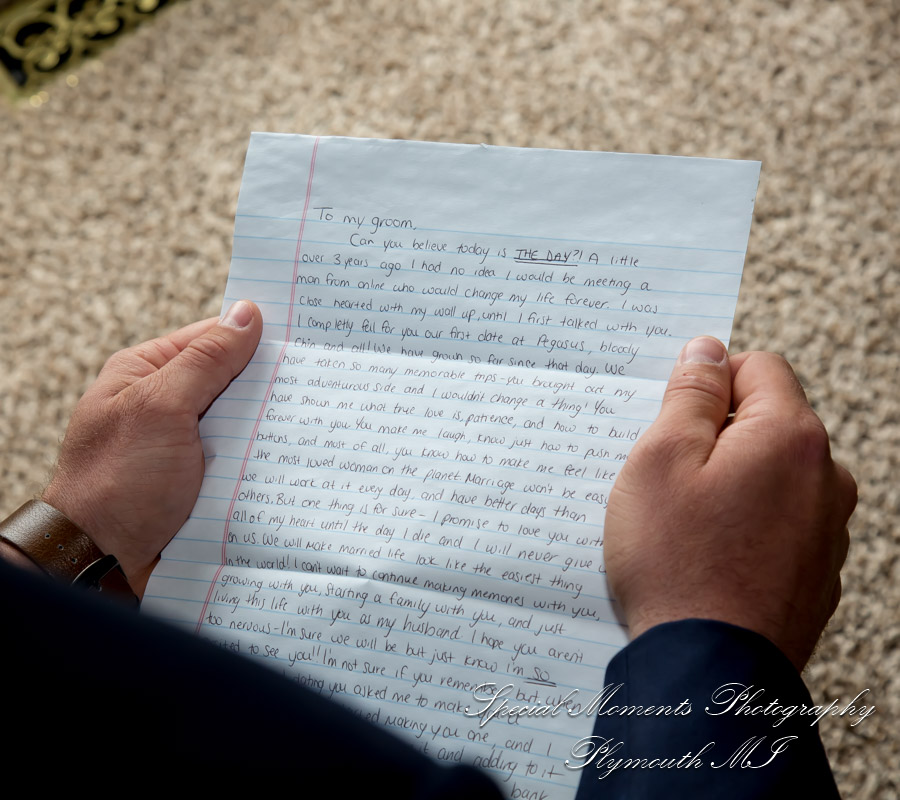 To my groom,
Can you believe today is THE DAY?! A little
over 3 years ago I had no idea I would be meeting a
man from online who would change my life forever. I was
close hearted with my wall up, until I first talked with you.
I completly fell for you our first date at Pegasus, bloody
chin and all! We have grown so far since that day. We
have taken so many memorable trips - you brought out my
most adventurous side and I wouldn't change a thing! You
have shown me what true love is, patience, and how to build
forever with you. You make me laugh, know just how to push my
buttons, and most of all, you know how to make me feel like
the most loved woman on the planet. Marriage won't be easy
we will work at it every day, and have better days than
others. But one thing is for sure - I promise to love you with
all of my heart until the day I die and I will never give
on us. We will make married life look like the easiest thing
in the world! I can't wait to continue making memories with you,
growing with you, starting a family with you, and just
living this life with you as my husband. I hope you aren't
too nervous - I'm sure we will be but just know I'm so
to see you!! I'm not sure if you remember, but we
dating you asked me to make
making you one, and I
and adding to it
bank
Special Moments Photography
Plymouth MI